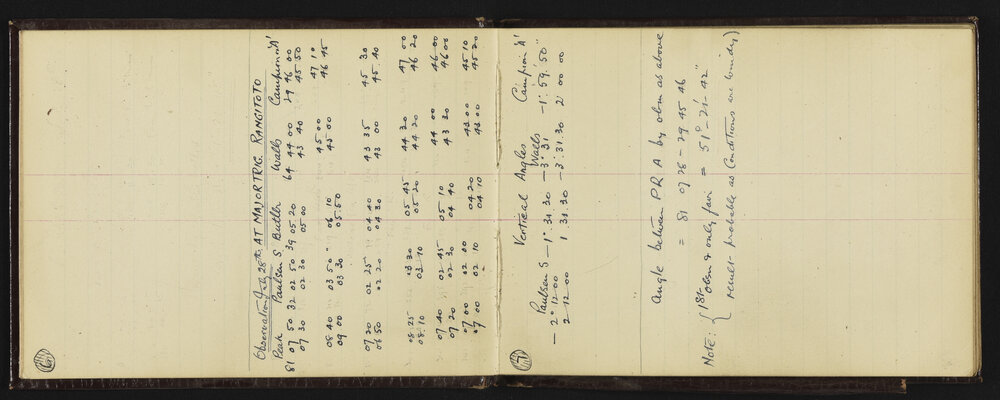 6
Observations July 28th. AT MAJOR TRIG. RANGITOTO
Peak Paulsen S Butler Walls Campion 'A'
81 07 50 32 02 50 39 05 20 64 44 00 29 46 00
07 30 02 30 05 00 43 40 45 50
08 40 03 50 06 10 45 00 47 10
09 00 03 30 05 50 45 00 46 45
07 20 02 25 04 40 43 35 45 30
06 50 02 20 04 30 43 00 45 40
08 25 03 30 05 45 44 30 47 00
08 10 03 10 05 20 44 20 46 20
07 40 02 45 05 10 44 00 46 00
07 20 02 30 04 40 43 30 46 00
07 00 02 00 04 20 43 00 45 10
07 00 02 10 04 10 43 00 45 20
7
Vertical Angles
Paulsen S Walls Campion 'A'
– 2° 12 00 – 1° 34 30 – 3° 31 – 1° 59' 50"
2 12 00 1 34 30 – 3. 31. 30 2 00 00
Angle between PR A by obsn as above
= 81 07 28 – 29 45 46
= 51° – 21' – 42"
Note: { 1st obsn & only fair
result probable as conditions are windy)